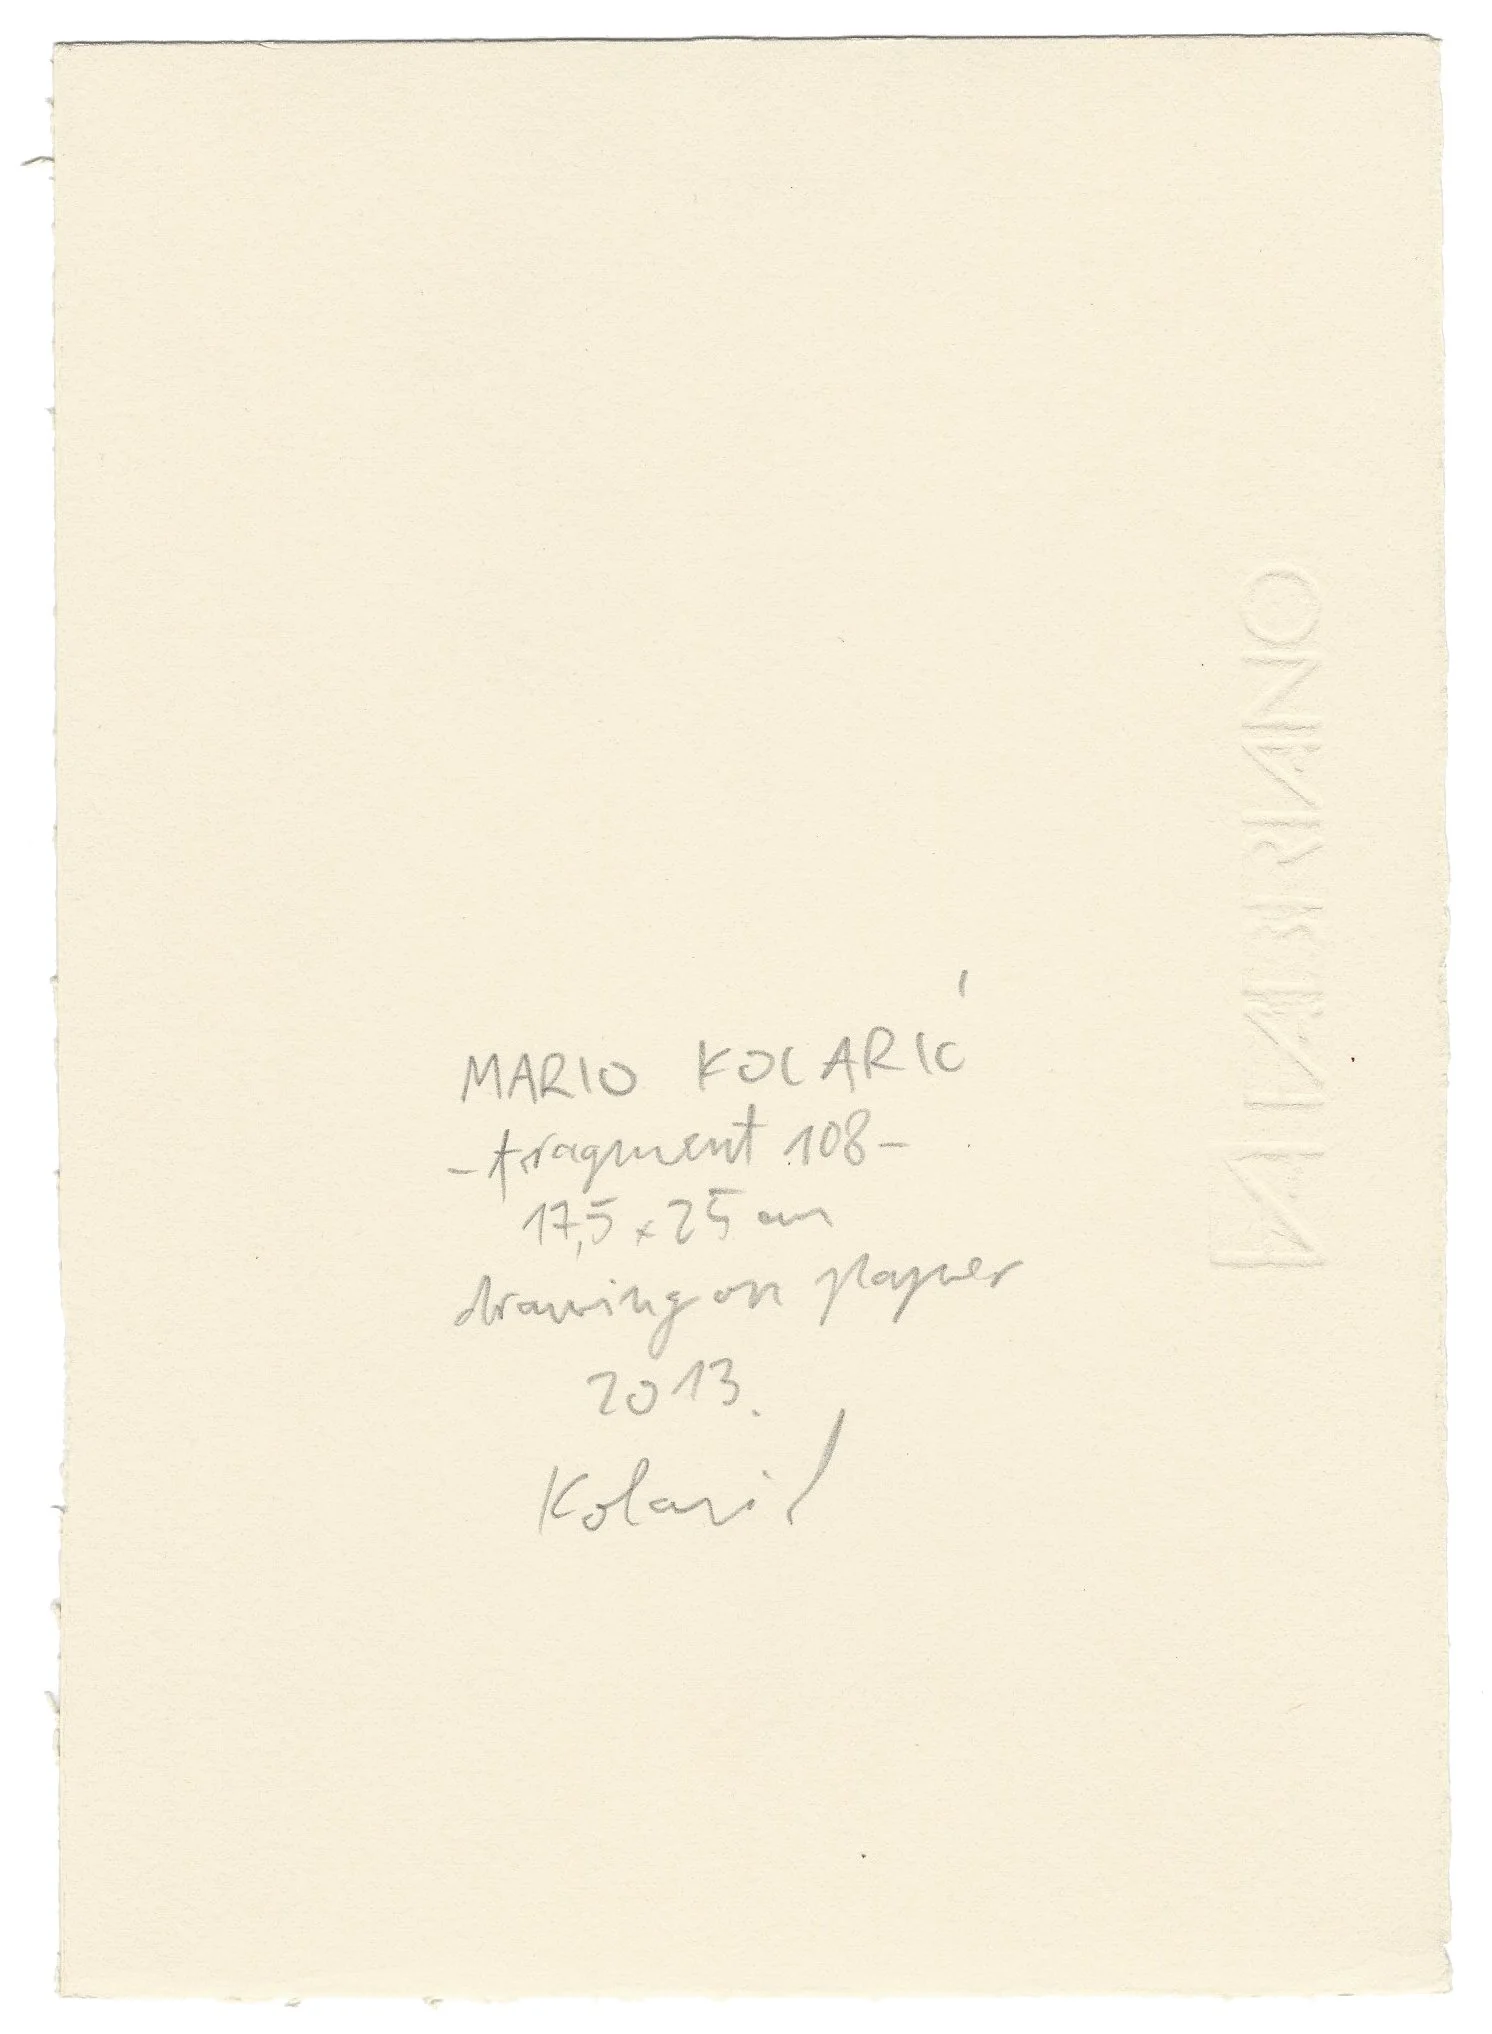 MARIO KOLARIĆ
-fragment 108-
17,5 x 25 cm
drawing on paper
2013.
Kolarić
FABRIANO